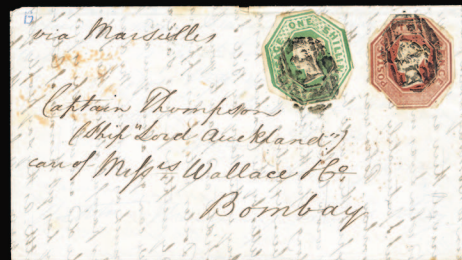 via Marseilles
ONE SHILLING
POSTAGE
Captain Thompson
(Ship "Lord Auckland")
care of Messrs Wallace & Co
Bombay